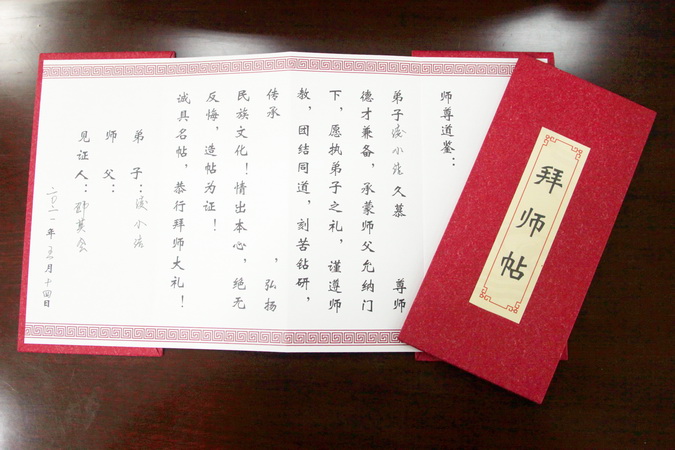 师尊道鉴：
弟子 小 久慕 尊师
德才兼备，承蒙师父允纳门
下，愿执弟子之礼，谨遵师
教，团结同道，刻苦钻研，
传承 ，弘扬
民族文化！情出本心，绝无
反悔，造帖为证！
诚具名帖，恭行拜师大礼！
弟 子： 小
师 父：
见证人： 英
二〇二一年五月十四日
拜师帖